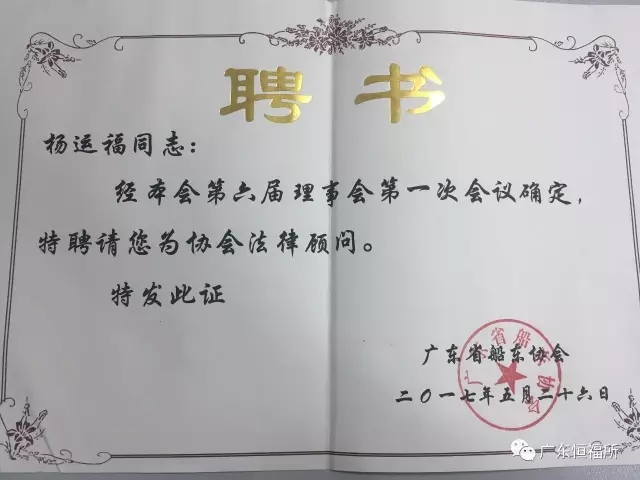 聘书
杨运福同志：
经本会第六届理事会第一次会议确定，
特聘请您为协会法律顾问。
特发此证
广东省船东协会
二〇一七年五月二十六日
广东省船东协会
广东恒福所